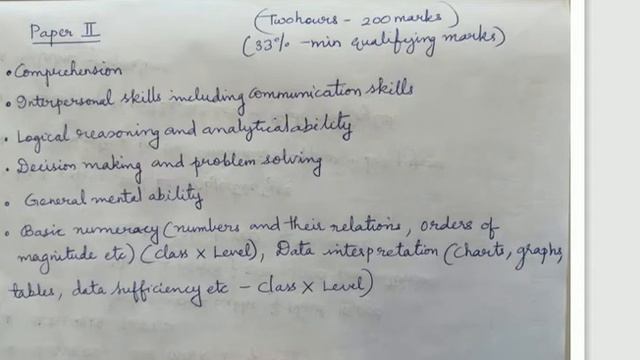 Paper II
(Two hours - 200 marks)
(33% - min qualifying marks)
• Comprehension
• Interpersonal skills including communication skills
• Logical reasoning and analytical ability
• Decision making and problem solving
• General mental ability
• Basic numeracy (numbers and their relations, orders of
magnitude etc) (class X Level), Data interpretation (charts, graphs,
tables, data sufficiency etc - class X Level)